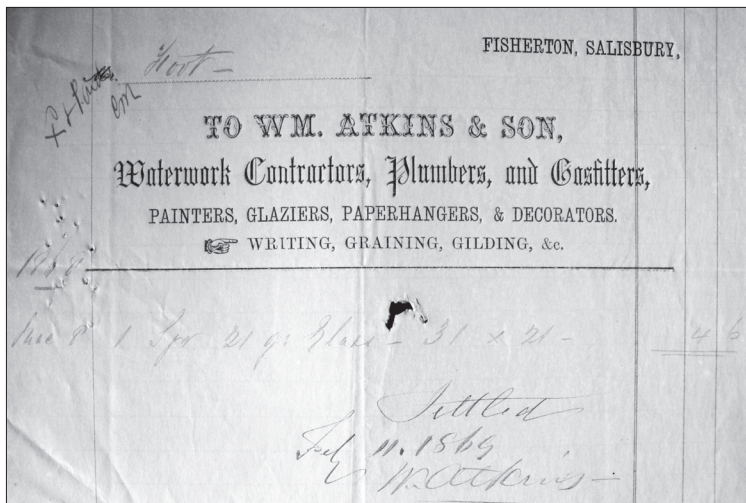 FISHERTON, SALISBURY,
Foot —
TO WM. ATKINS & SON,
Waterwork Contractors, Plumbers, and Gasfitters,
PAINTERS, GLAZIERS, PAPERHANGERS, & DECORATORS.
WRITING, GRAINING, GILDING, &c.
1868
8 1 Sqr 21 Glass — 31 x 21 — 4 6
Settled
11. 1869
W. Atkins —